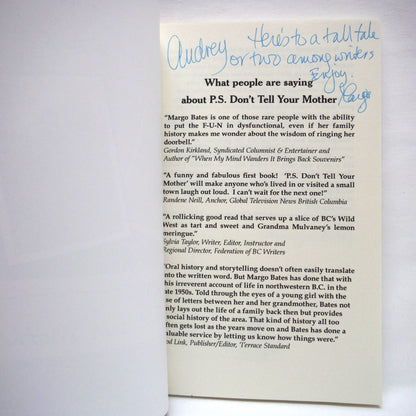 Audrey Here's to a tall tale
or two among writers
Enjoy.
Margo
What people are saying
about P.S. Don't Tell Your Mother
"Margo Bates is one of those rare people with the ability
to put the F-U-N in dysfunctional, even if her family
history makes me wonder about the wisdom of ringing her
doorbell."
Gordon Kirkland, Syndicated Columnist & Entertainer and
Author of "When My Mind Wanders It Brings Back Souvenirs"
"A funny and fabulous first book! 'P.S. Don't Tell Your
Mother' will make anyone who's lived in or visited a small
town laugh out loud. I can't wait for the next one!"
Randene Neill, Anchor, Global Television News British Columbia
"A rollicking good read that serves up a slice of BC's Wild
West as tart and sweet and Grandma Mulvaney's lemon
meringue."
Sylvia Taylor, Writer, Editor, Instructor and
Regional Director, Federation of BC Writers
"Oral history and storytelling doesn't often easily translate
into the written word. But Margo Bates has done that with
this irreverent account of life in northwestern B.C. in the
late 1950s. Told through the eyes of a young girl with the
se of letters between her and her grandmother, Bates not
nly lays out the life of a family back then but provides
social history of the area. That kind of history all too
ften gets lost as the years move on and Bates has done a
aluable service by letting us know how things were."
od Link, Publisher/Editor, 'Terrace Standard